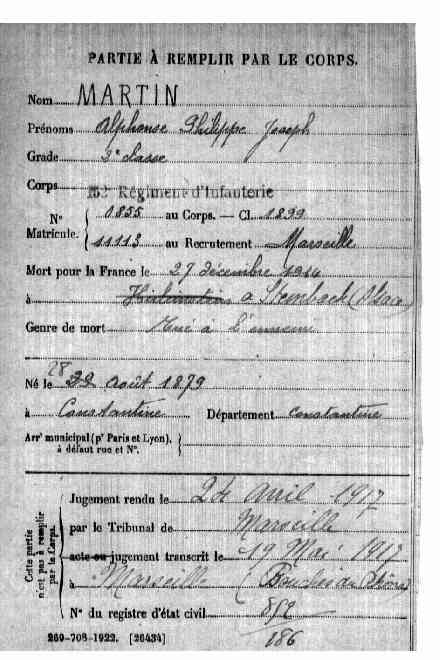 PARTIE À REMPLIR PAR LE CORPS.
Nom MARTIN
Prénoms Alphonse Philippe Joseph
Grade 2e classe
Corps 152e Régiment d'Infanterie
N° Matricule. 0855 au Corps. — Cl. 1899
11113 au Recrutement Marseille
Mort pour la France le 27 décembre 1914
à a Steinbach (Alsace)
Genre de mort Tué à l'ennemi
Né le 28 août 1879
à Constantine Département Constantine
Arrt municipal (pr Paris et Lyon),
à défaut rue et N°.
Cette partie n'est pas à remplir par le Corps.
Jugement rendu le 24 avril 1917
par le Tribunal de Marseille
acte ou jugement transcrit le 19 Mai 1917
à Marseille (Bouches du Rhône)
N° du registre d'état civil 852
186
269-708-1922. [26434]